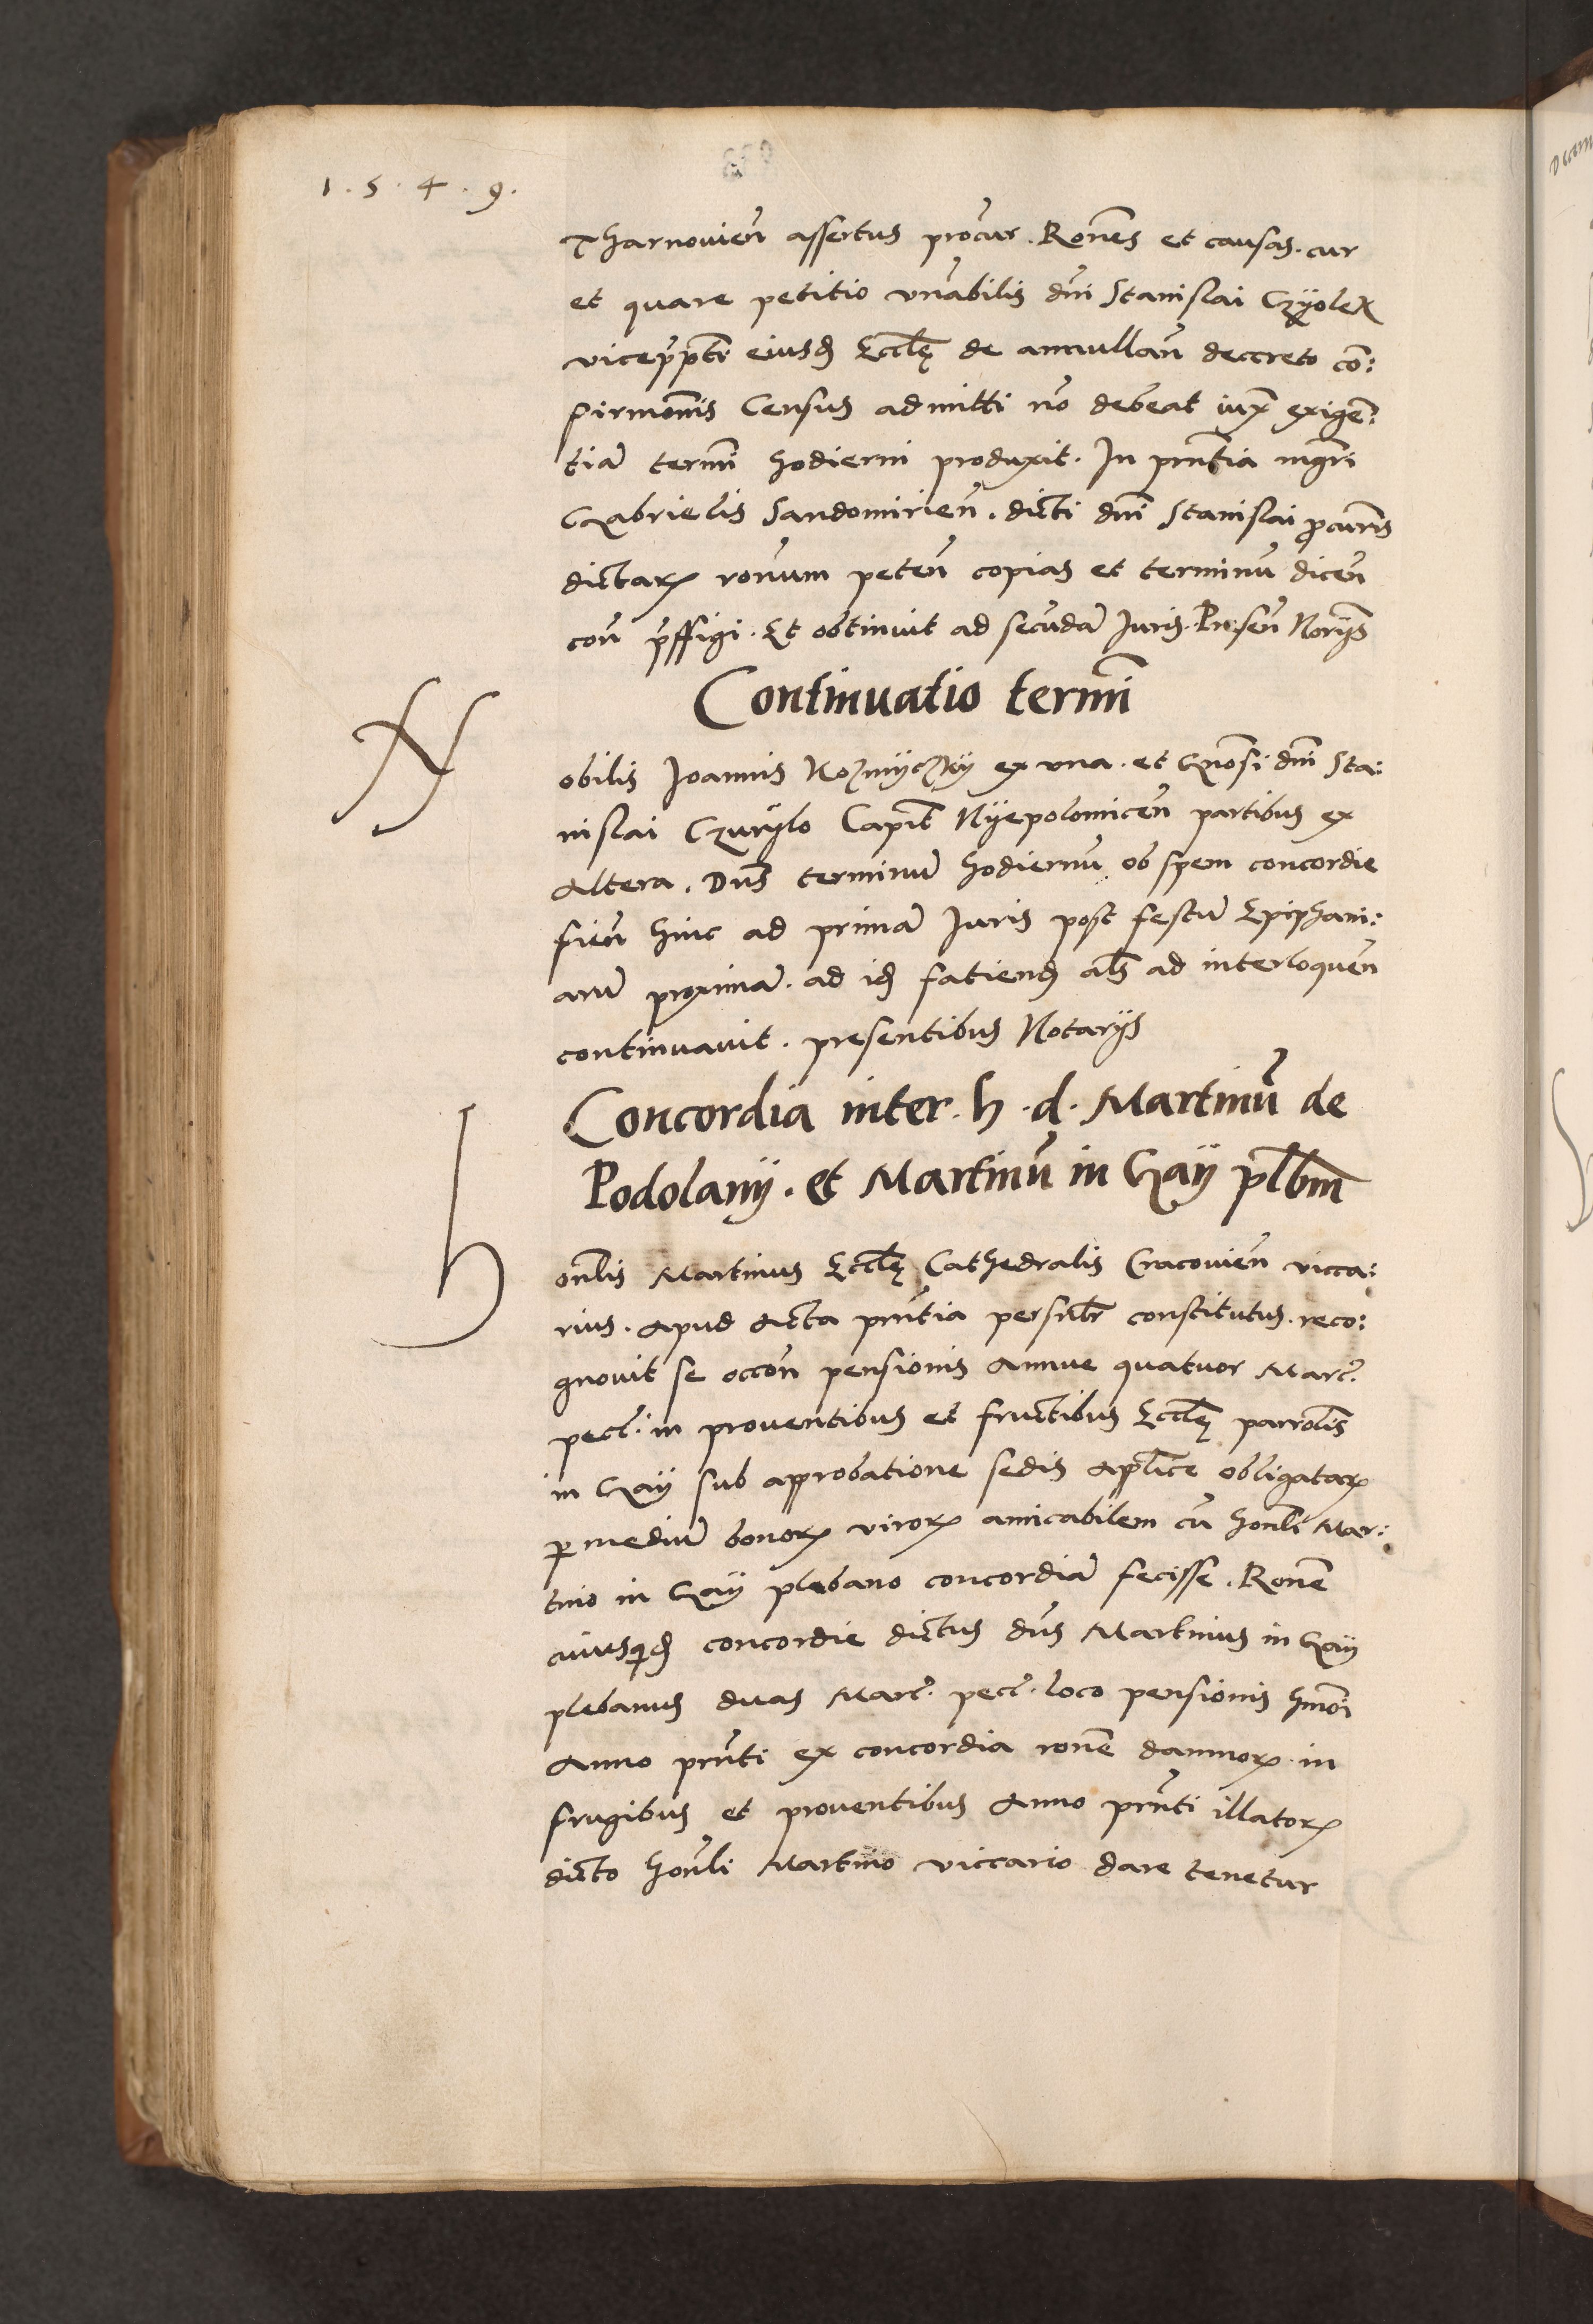 1.5.4.9.
Tharnovien̄ assertus procur. Rones et causas. cur
et quare petitio vnabilis dni Stanislai Czyolek
viceppti eiusd Eccle de annullan̄ decreto co:
firmonis Census admitti no debeat iux exigen:
tia termi hodierni produxit. In pntia mgri
Gabrielis Sandomirien̄. dicti dni Stanislai procuris
dictar ronum peten̄ copias et terminu dicen̄
con̄ pffigi. Et obtinuit ad secuda Juris. Presen̄ Norijs
Continuatio termi
Nobilis Joannis ex vna. et Gnosi dni Sta:
nislai Czurylo Capit Nyepolomicen̄ partibus ex
altera. Dns terminu hodiernu ob spem concordie
fien̄ hinc ad prima Juris post festu Epiphani:
aru proxima. ad id fatiend als ad interloquen̄
continuavit. presentibus Notarijs
Concordia inter. h. d. Martinu de
Podolany. et Martinu in Gay plbm
honlis Martinus Eccle Cathedralis Cracovien̄ vicca:
rius. Apud Acta pntia personlr constitutus. reco:
gnovit se occon̄ pensionis Annue quatuor Marc.
pecc. in proventibus et fructibus Eccle parrolis
in Gay sub approbatione sedis Aplice obligatar
p mediu bonor viror amicabilem cu honli Mar:
tino in Gay plebano concordia fecisse. Rone
cuiusqd concordie dictus dns Martinus in Gay
plebanus duas Marc. pecc. loco pensionis hmoi
Anno pnti ex concordia rone damnor in
frugibus et proventibus Anno pnti illator
dicto honli Martino viccario dare tenetur